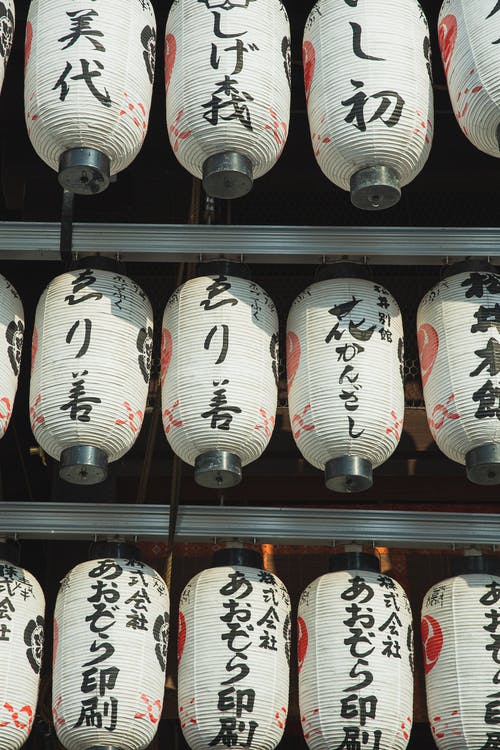 美代
しげ
し初
ゑり善
ゑり善
松井別館
花かんざし
館
株式会社
あおぞら印刷
株式会社
あおぞら印刷
株式会社
あおぞら印刷